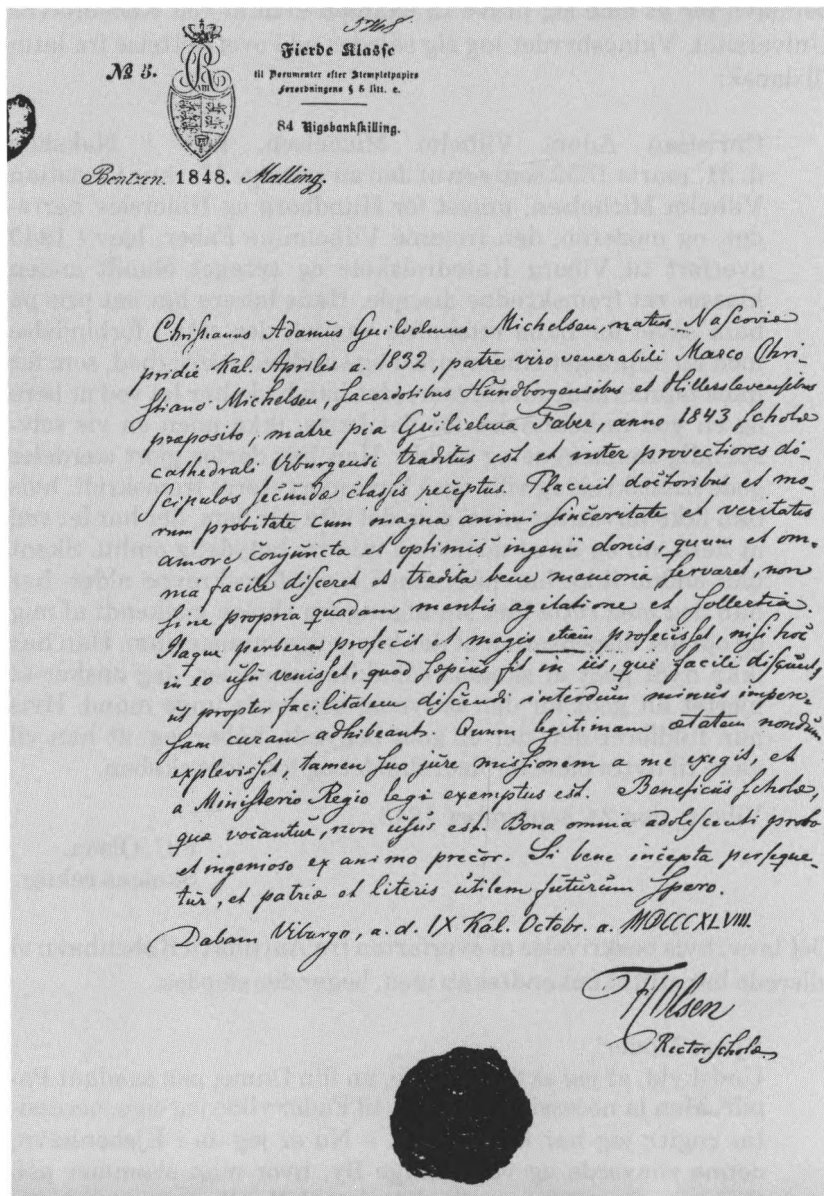 5768.
Fierde Klasse
№ 5.
til Documenter efter Stempletpapirs
Forordningens § 6 litt. c.
84 Rigsbankskilling.
Bentzen. 1848. Malling.
Christianus Adamus Guilielmus Michelsen, natus Nascoviæ
pridie Kal. Apriles a. 1832, patre viro venerabili Marco Chri-
stiano Michelsen, sacerdotibus Hundborgensibus et Hillerslevensibus
præposito, matre pia Guilielma Faber, anno 1843 scholæ
cathedrali Viburgensi traditus est et inter provectiores di-
scipulos secundæ classis receptus. Placuit doctoribus et mo-
rum probitate cum magna animi sinceritate et veritatis
amore conjuncta et optimis ingenii donis, quum et om-
nia facile disceret et tradita bene memoria servaret, non
sine propria quadam mentis agitatione et sollertia.
Itaque perbene profecit et magis etiam profecisset, nisi hoc
in eo usu venisset, quod sæpius fit in iis, qui facile discunt,
ut propter facilitatem discendi interdum minus impen-
sam curam adhibeant. Quum legitimam ætatem nondum
explevisset, tamen suo jure missionem a me exegit, et
a Ministerio Regio lege exemptus est. Beneficiis scholæ,
quæ vocantur, non usus est. Bona omnia adolescenti probo
et ingenioso ex animo precor. Si bene incepta perseque-
tur, et patriæ et literis utilem futurum spero.
Dabam Viburgo, a. d. IX Kal. Octobr. a. MDCCCXLVIII.
Olsen
Rector scholæ